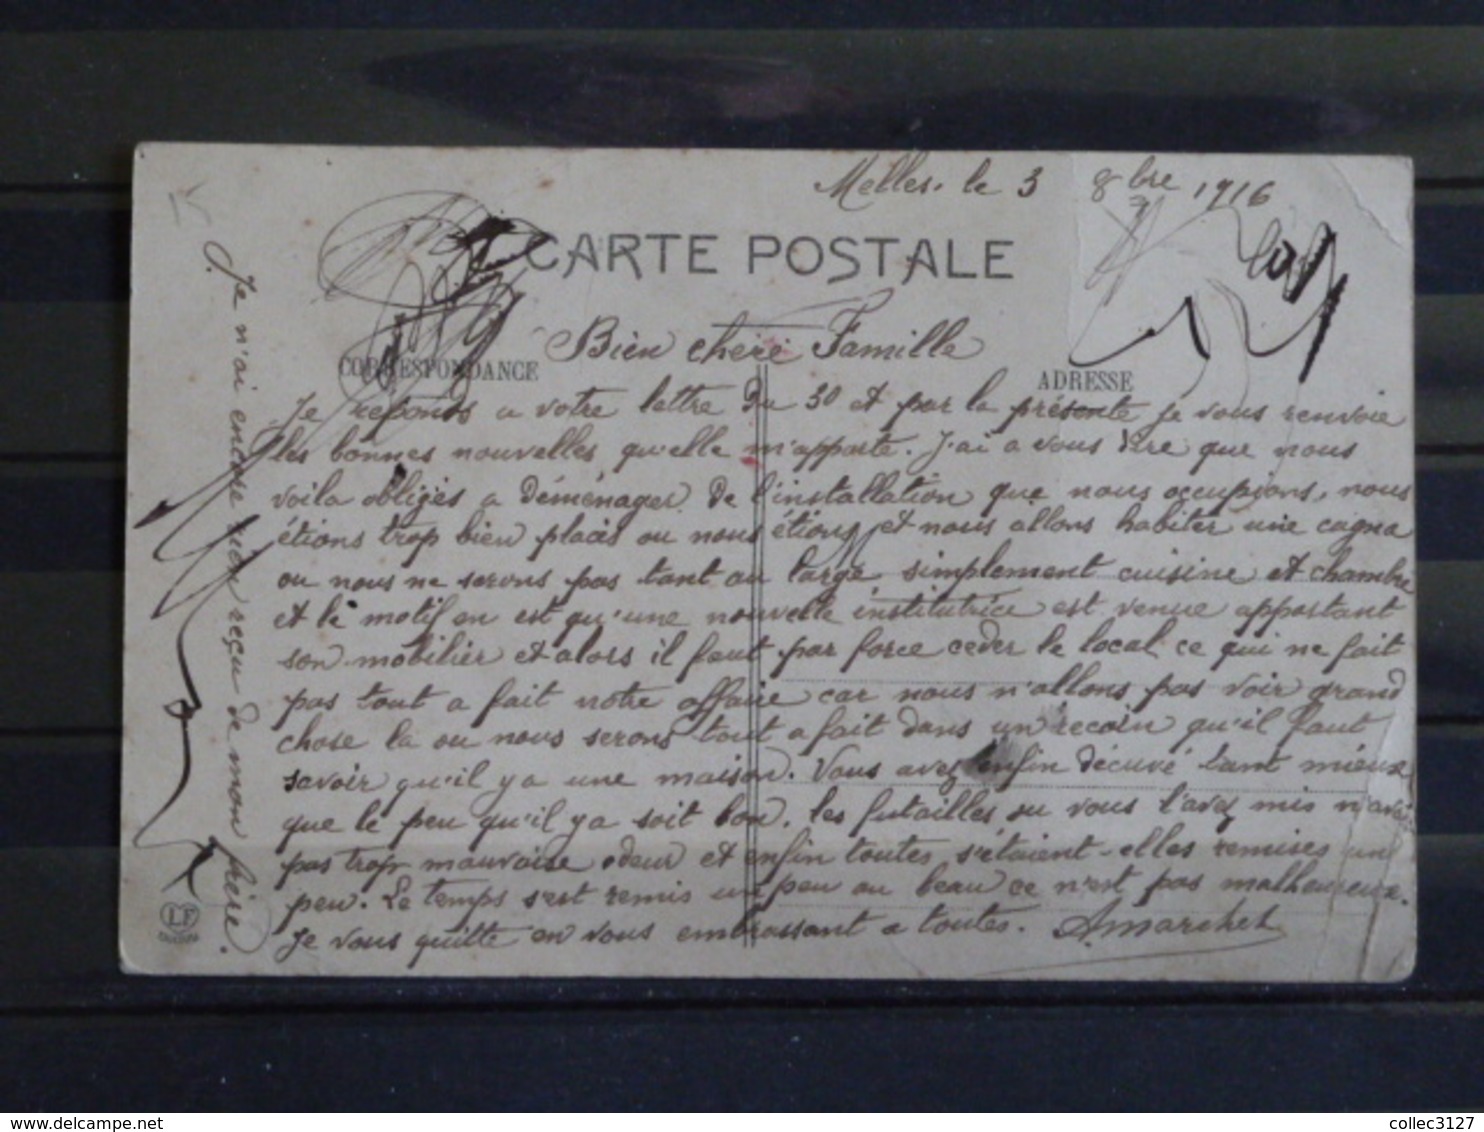 Melles. le 3 8bre 1916
CARTE POSTALE
Bien chère Famille
CORRESPONDANCE
ADRESSE
Je reponds a votre lettre Du 30 et par la présente je vous renvoie
les bonnes nouvelles qu'elle m'apporte. J'ai a vous Dire que nous
voila obligés a déménager De l'installation que nous occupions, nous
étions trop bien placés ou nous étions et nous allons habiter une cagna
ou nous ne serons pas tant au large simplement cuisine et chambre
et le motif en est qu'une nouvelle institutrice est venue apportant
son mobilier et alors il faut par force ceder le local ce qui ne fait
pas tout a fait notre affaire car nous n'allons pas voir grand
chose la ou nous serons tout a fait dans un recoin qu'il faut
savoir qu'il y a une maison. Vous avez enfin décuvé tant mieux
que le peu qu'il y a soit bon. les futailles ou vous l'avez mis n'avais
pas trop mauvaise odeur et enfin toutes s'étaient-elles remises un
peu. Le temps s'est remis un peu au beau ce n'est pas malheureux.
Je vous quitte en vous embrassant a toutes. A. Marchet
Je n'ai encore rien reçu de mon frère.
LF
collec3127